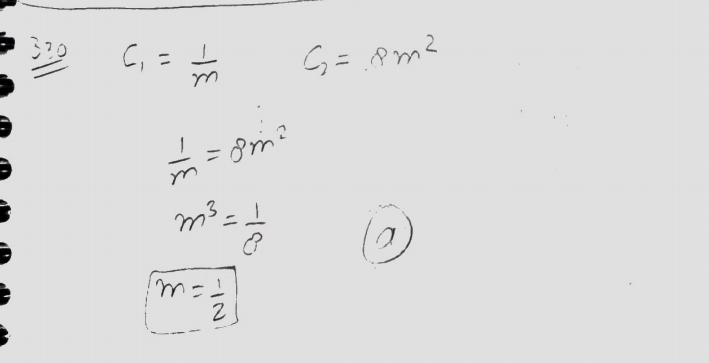 330 C₁ = 1/m C₂ = 8m²
1/m = 8m²
m³ = 1/8
a
m = 1/2